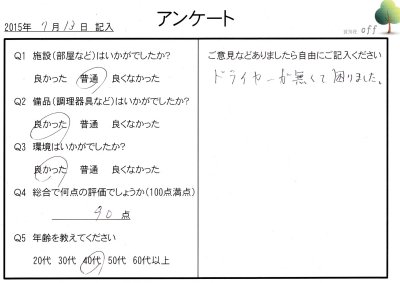 アンケート
2015年 7月 13日 記入
off
Q1 施設(部屋など)はいかがでしたか?
良かった 普通 良くなかった
Q2 備品(調理器具など)はいかがでしたか?
良かった 普通 良くなかった
Q3 環境はいかがでしたか?
良かった 普通 良くなかった
Q4 総合で何点の評価でしょうか(100点満点)
90 点
Q5 年齢を教えてください
20代 30代 40代 50代 60代以上
ご意見などありましたら自由にご記入ください
ドライヤーが無くて困りました。